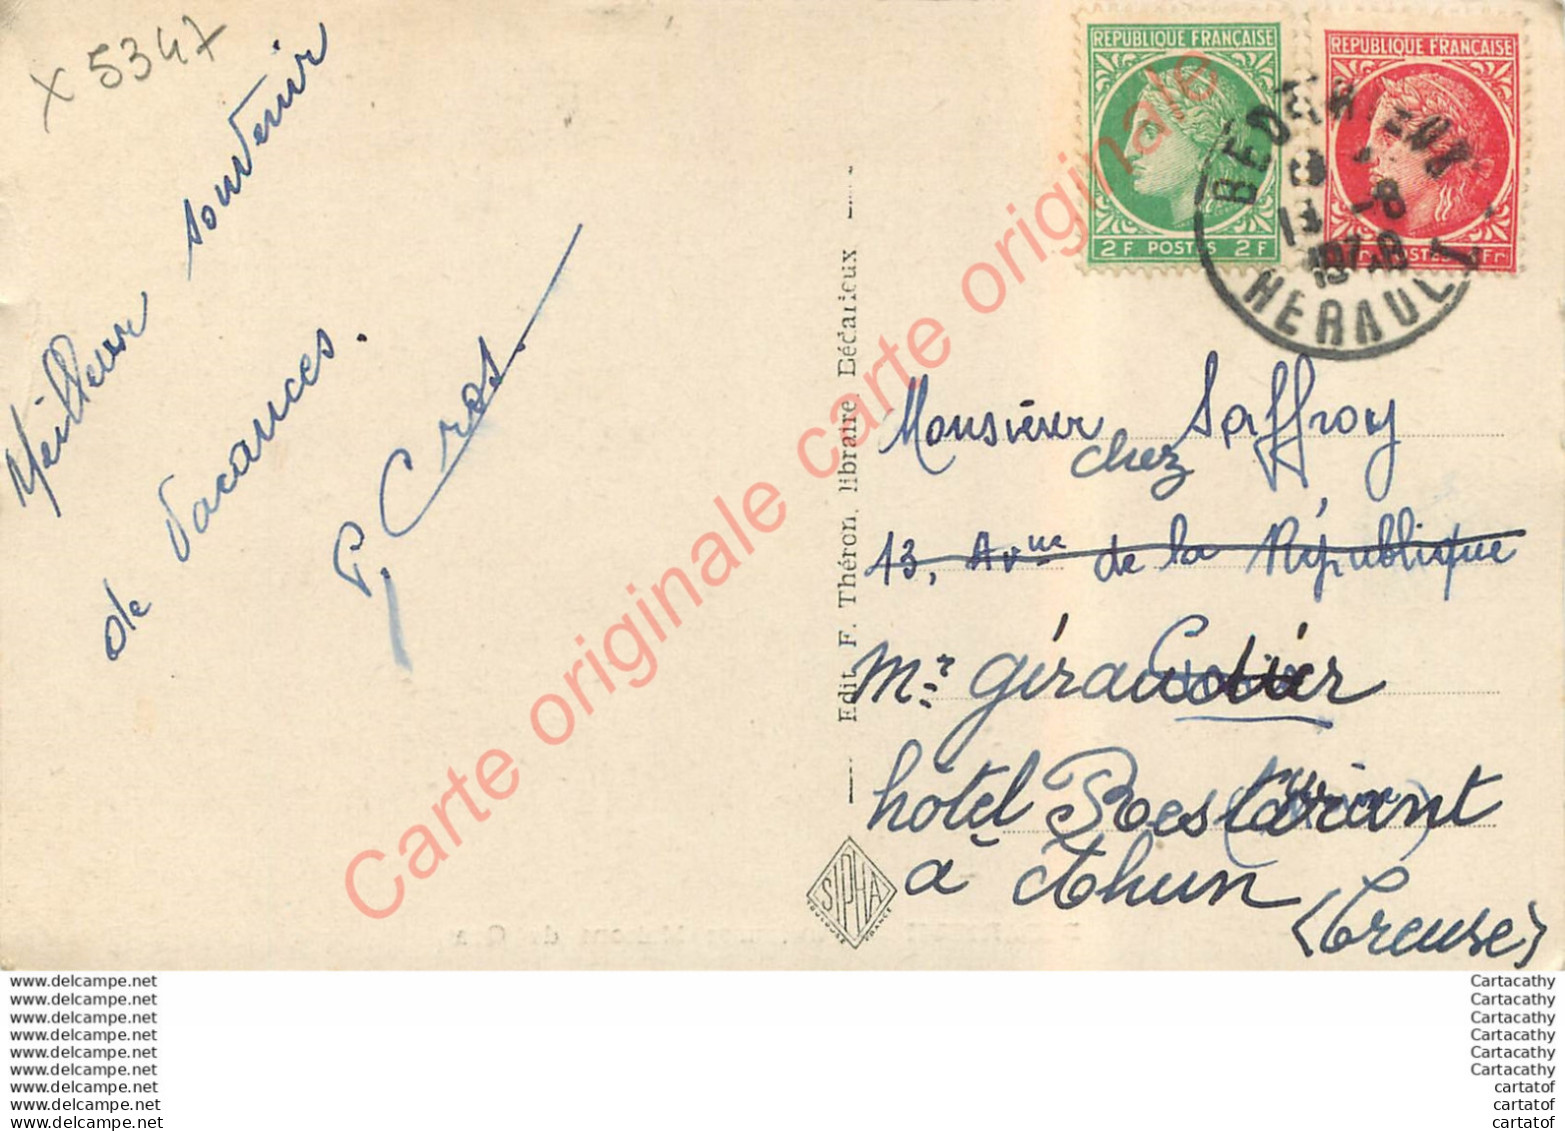 x 5347
Meilleur souvenir
de vacances.
P. Cros.
Edit. F. Théron, libraire, Bédarieux
SIPHA
TOULOUSE
FRANCE
REPUBLIQUE FRANÇAISE
2F POSTES 2F
REPUBLIQUE FRANÇAISE
POSTES
BEDARIEUX
13 -8
HERAULT
Monsieur Saffroy
chez
13, Avnue de la République
Mr: Géraudier
hôtel Boestarant
à Ahun
(Creuse)
Carte originale carte originale
www.delcampe.net
www.delcampe.net
www.delcampe.net
www.delcampe.net
www.delcampe.net
www.delcampe.net
www.delcampe.net
www.delcampe.net
www.delcampe.net
Cartacathy
Cartacathy
Cartacathy
Cartacathy
Cartacathy
Cartacathy
cartatof
cartatof
cartatof